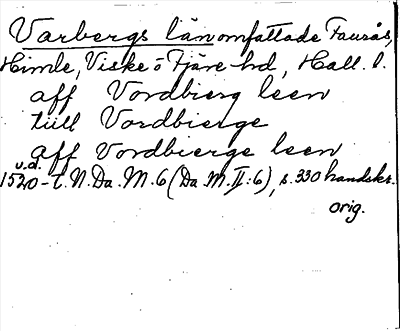 Varbergs län omfattade Faurås,
Himle, Viske o Fjäre hd, Hall. l.
aff Vordbierg leen
till Vordbierge
aff Vordbierge leen
u.d.
1520-t. N. Da. M. 6 (Da. M. II:6), s. 330 handskr.
orig.